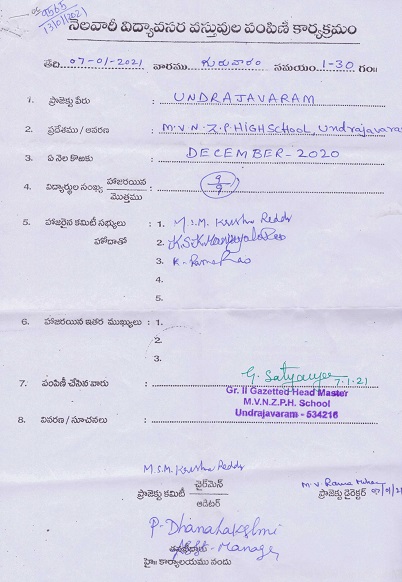 9565
13/01/2021
నెలవారీ విద్యావసర వస్తువుల పంపిణి కార్యక్రమం
తేది. 07-01-2021 వారము గురువారం సమయం 1-30 గం॥
1. ప్రాజెక్టు పేరు : UNDRAJAVARAM
2. ప్రదేశము / ఆవరణ : M.V.N.Z.P HIGH SCHOOL, Undrajavaram
3. ఏ నెల కొఱకు : DECEMBER-2020
4. విద్యార్థుల సంఖ్య హాజరయిన / మొత్తము : 9/9
5. హాజరైన కమిటీ సభ్యులు : 1. M.S.M. Krishna Reddy
హోదాతో 2. K.S.K. Rao
3. K. Rama Rao
4.
5.
6. హాజరయిన ఇతర ముఖ్యులు : 1.
2.
3.
7. పంపిణీ చేసిన వారు : G. 7.1.21
Gr. II Gazetted Head Master
M.V.N.Z.P.H. School
Undrajavaram - 534216
8. వివరణ / సూచనలు :
M.S.M. Krishna Reddy
ప్రాజెక్టు కమిటీ చైర్‌మెన్ / ఆడిటర్
M.V. Rama
ప్రాజెక్టు డైరెక్టర్
P. Dhanalakshmi
Manager
హై॥ కార్యాలయము నందు